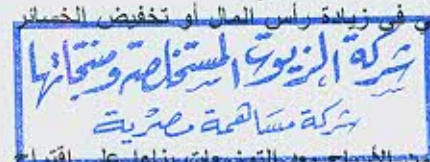 في زيادة رأس المال أو تخفيض الخسائر
شركة الزيوت المستخلصة ومنتجاتها
شركة مساهمة مصرية
على اقتراح